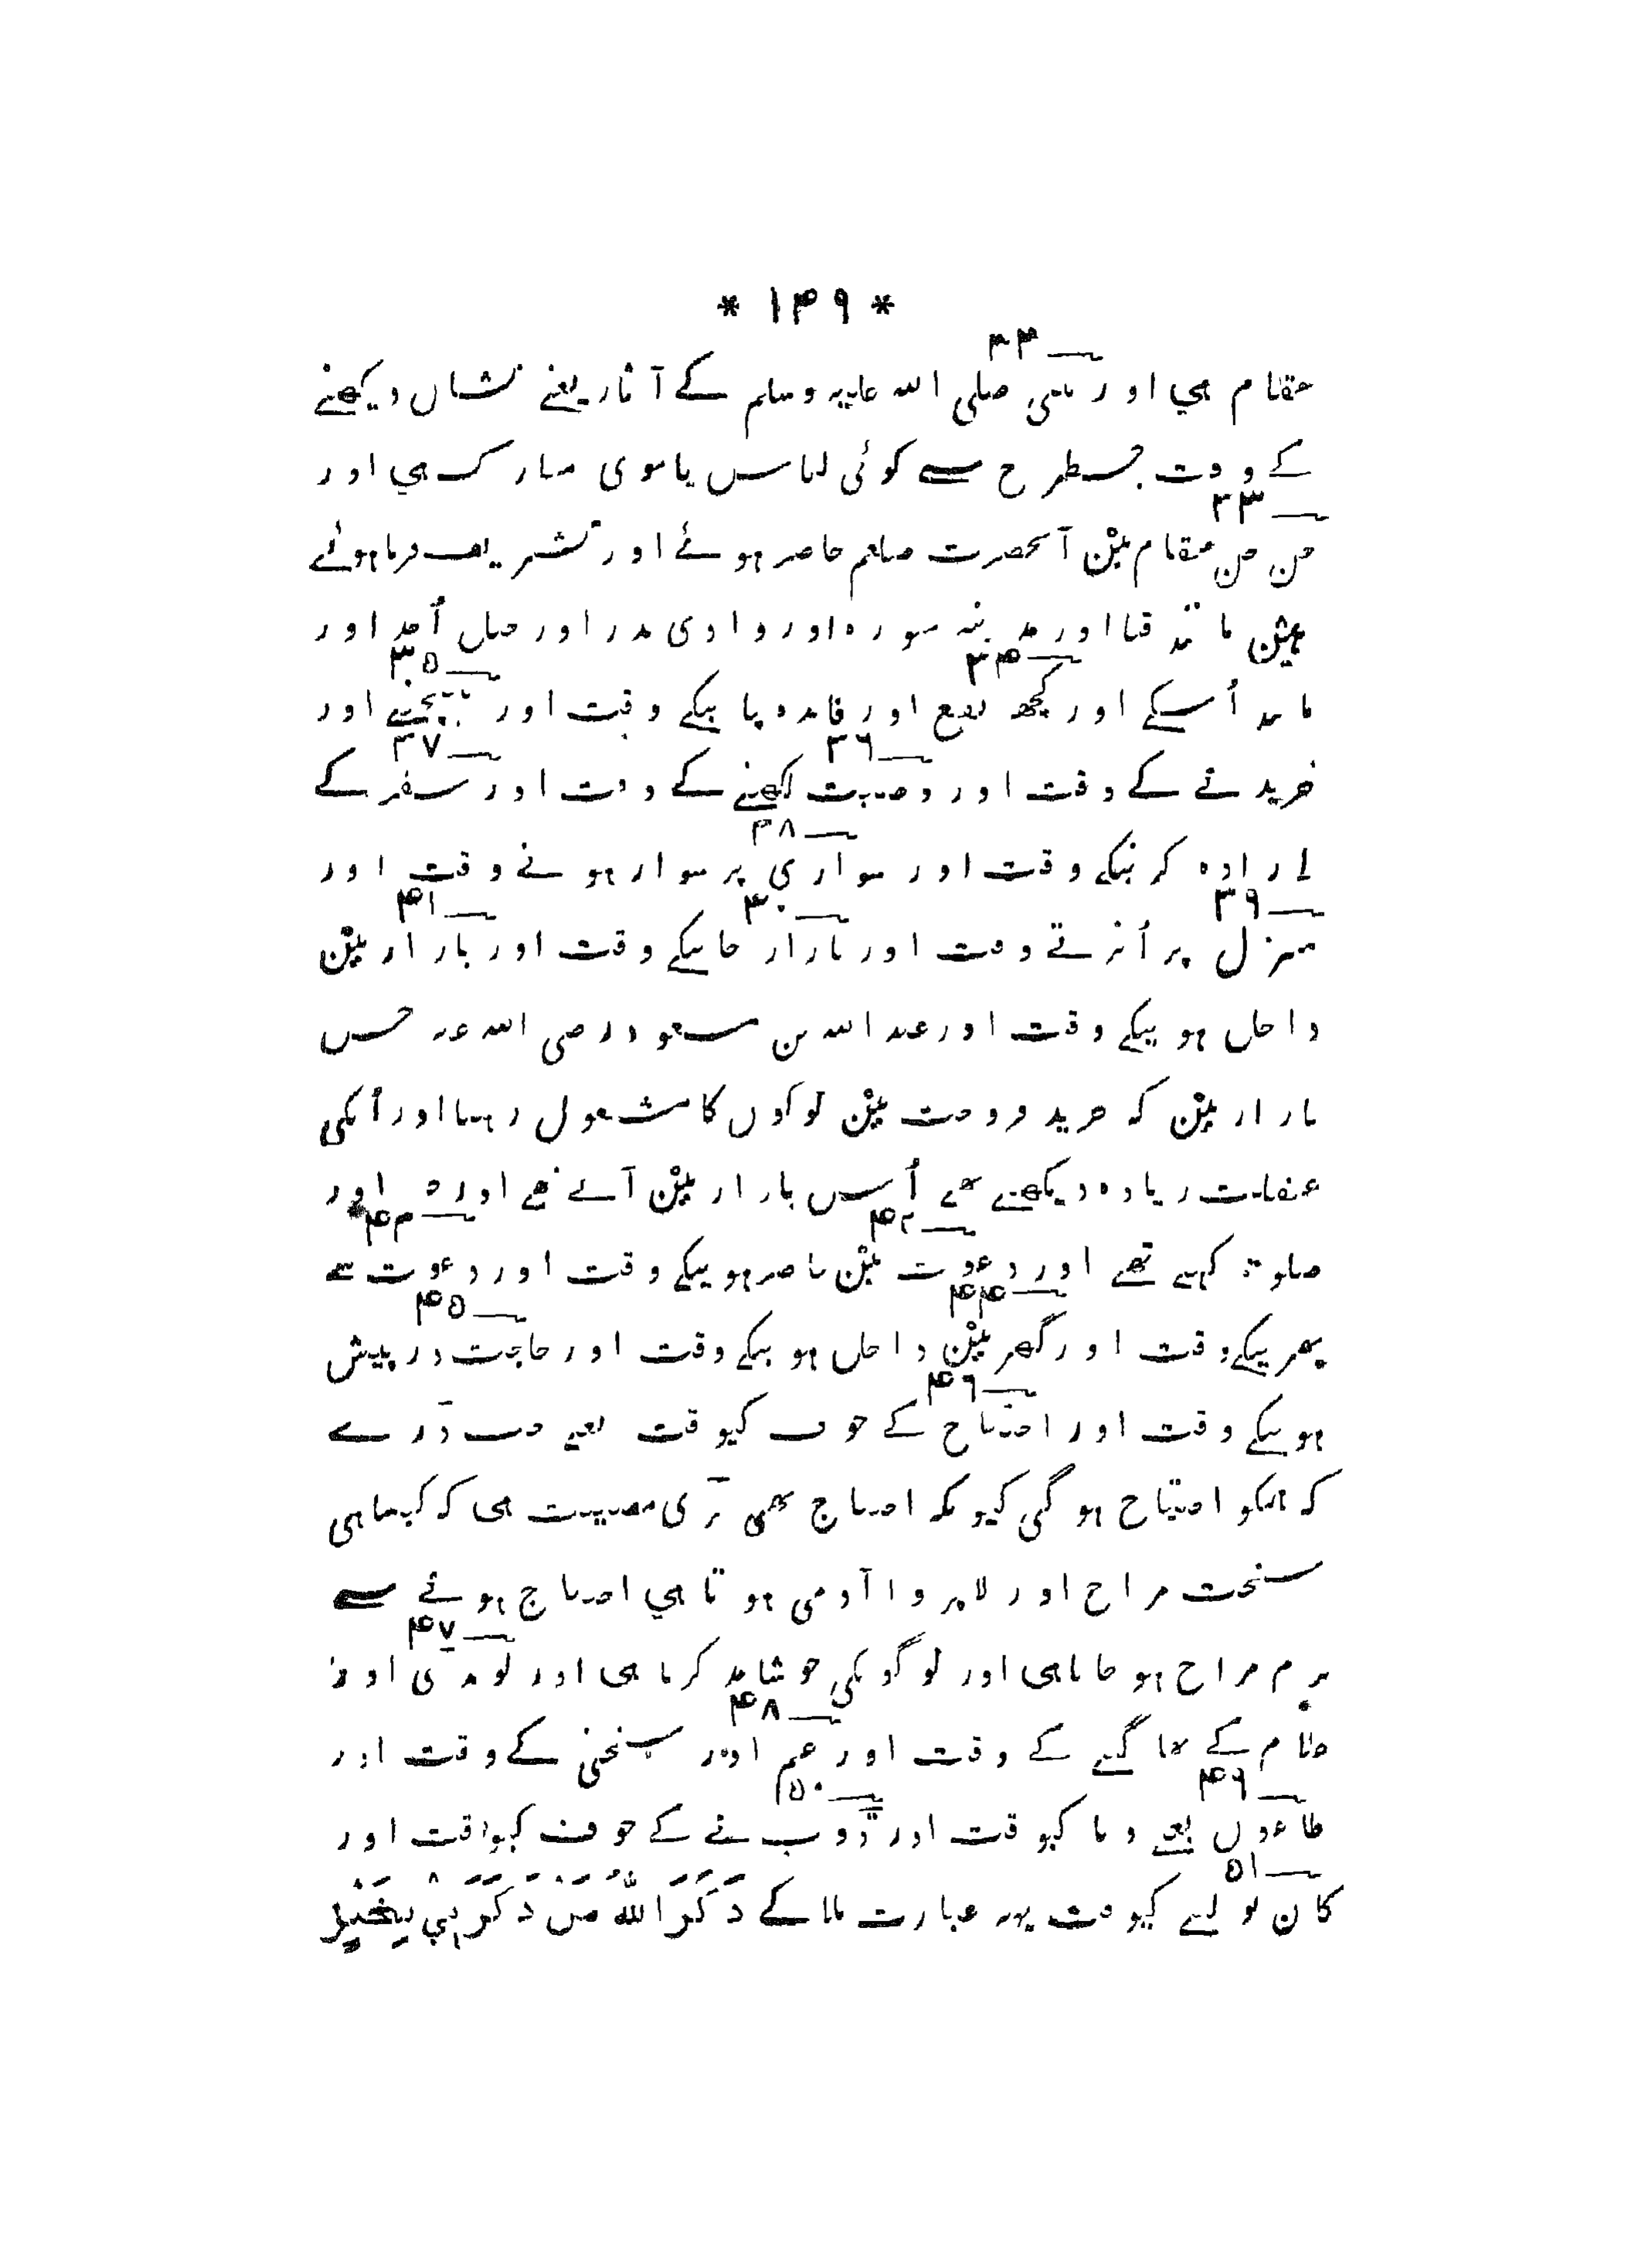 * ۱۴۹ *
۳۲
مقام هي اور نبي صلی الله علیه وسلم کے آثار یعنے نشان دیکھنے
کے وقت جسطرح سے کوئی لباس یا موی مبارک هي اور
۳۳
جن جن مقام میْن آنحضرت صلعم حاضر ہوئے اور تشریف فرما ہوئے
ہیْن مانند قبا اور مدینہ منورہ اور وادی بدر اور جبل اُحد اور
۳۴ ۳۵
مانند اُسکے اور کچھ نفع اور فایدہ پانیکے وقت اور بیچنے اور
۳۶ ۳۷
خریدنے کے وقت اور وصیت لکھنے کے وقت اور سفر کے
۳۸
ارادہ کرنیکے وقت اور سواری پر سوار ہونے وقت اور
۳۹ ۴۰ ۴۱
منزل پر اُترتے وقت اور بازار جانیکے وقت اور بازار میْن
داخل ہونیکے وقت اور عبد الله بن مسعود رضی الله عنہ جس
بازار میْن کہ خرید فروخت میْن لوگوں کا مشغول رہنا اور اُنکی
غفلت زیادہ دیکھتے تھے اُس بازار میْن آتے تھے اور اور
۴۲ ۴۳
صلوة کہتے تھے اور دعوت میْن حاضر ہونیکے وقت اور دعوت سے
۴۴ ۴۵
پھرنیکے وقت اور گھر میْن داخل ہونیکے وقت اور حاجت درپیش
۴۶
ہونیکے وقت اور احتیاج کے خوف کیوقت یعنے جب ڈرے
کہ ہمکو احتیاج ہوگی کیونکہ احتیاج بھی بڑی مصیبت هی کہ کیسا ہی
سخت مزاج اور لاپروا آدمی ہوتا هي احتیاج ہوئے سے
۴۷
نرم مزاج ہو جاتا هی اور لوگونکی خوشامد کرتا هی اور لونڈی اور
۴۸
غلام کے بھاگنے کے وقت اور غم اور سختی کے وقت اور
۴۹ ۵۰
طاعون یعنے وبا کیوقت اور ڈوبنے کے خوف کیوقت اور
۵۱
کان بولنے کیوقت یہہ عبارت ملا کے ذَکَرَ اللّٰهُ مَنْ ذَکَرَنِي بِخَیْرٍ